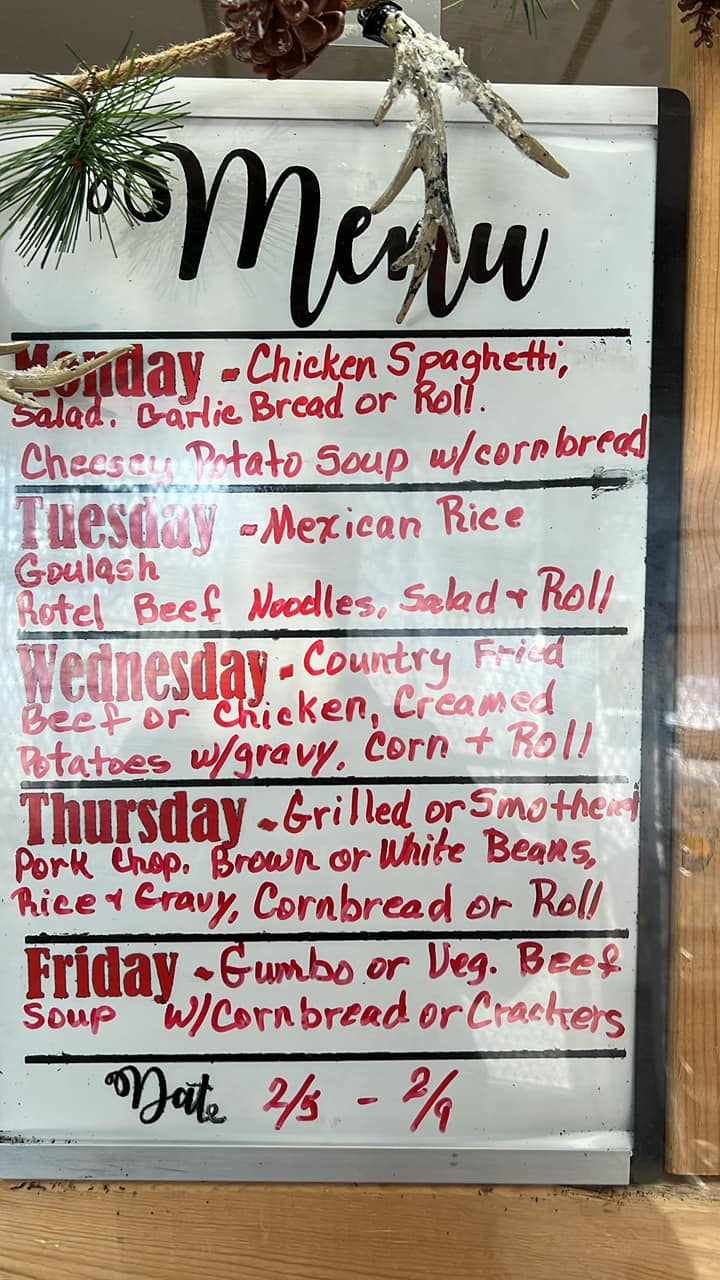 Menu
Monday - Chicken Spaghetti,
Salad. Garlic Bread or Roll.
Cheesey Potato Soup w/cornbread
Tuesday - Mexican Rice
Goulash
Rotel Beef Noodles, Salad + Roll
Wednesday - Country Fried
Beef or Chicken, Creamed
Potatoes w/gravy, Corn + Roll
Thursday - Grilled or Smothered
Pork Chop. Brown or White Beans,
Rice + Gravy, Cornbread or Roll
Friday - Gumbo or Veg. Beef
Soup w/Cornbread or Crackers
Date 2/5 - 2/9